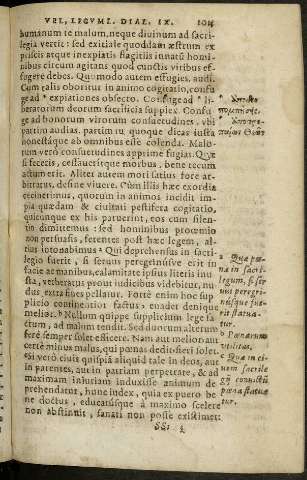 VEL, LEGVMI. DIAL. IX.
humanum te malum, neque diuinum ad sacri-
legia vertit: sed exitiale quoddam æstrum ex
priscis atque inexpiatis flagitiis innatū homi-
nibus circum agitans quod cunctis viribus ef-
fugere debes. Quomodo autem effugies, audi.
Cum talis oboritur in animo cogitatio, confu
ge ad * expiationes obsecro. Confuge ad * li-
beratorum deorum sacrificia supplex. Confu
ge ad bonorum virorum consuetudines, vbi
partim audias, partim tu quoque dicas iusta
honestáque ab omnibus esse colenda. Malo-
rum verò consuetudines apprime fugias. Quæ
si feceris, cessaueritque morbus, bene tecum
actum erit. Aliter autem mori satius fore ar-
bitratus, desine viuere. Cùm illis hæc exordia
cecinerimus, quorum in animos incidit im-
pia quædam & ciuitati pestifera cogitatio,
quicunque ex his paruerint, eos cum silen-
tio dimittemus: sed hominibus proœmio
non persuasis, ferentes post hæc legem, al-
tius intonabimus. Qui deprehensus in sacri-
legio fuerit, si seruus peregrinusve erit in
facie ac manibus, calamitate ipsius literis inu
sta, verberatus prout iudicibus videbitur, nu
dus extra fines pellatur. Forte enim hoc sup
plicio continentior factus euadet denique
melior. b Nullum quippe supplicium lege fa
ctum, ad malum tendit. Sed duorum alterum
ferè semper solet efficere. Nam aut meliorem aut
certè minus malus, qui pœnas dedit fieri solet.
si verò ciuis quispiã aliquid tale in deos, aut
in parentes, aut in patriam perpetrate, & ad
maximam iniuriam induxisse animum de
prehendatur, hunc iudex, quia ex puero be
ne doctus, educatúsque à maximo scelere
non abstinuit, sanari non posse existimet:
a Quæ pœ
na in sacri-
legum, si ser
uus peregri-
nusque sue-
rit statua-
tur.
b Pœnarum
vtilitas.
c Quæ in ci-
uem sacrile
gij conuictũ
pœna statua
tur.